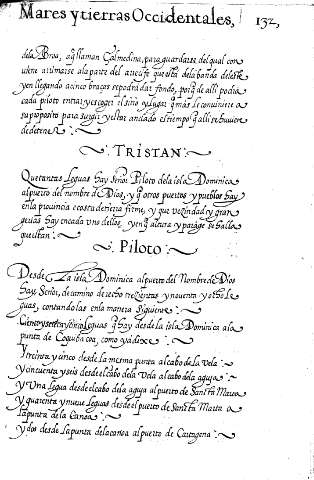 Mares y tierras Occidentales, 132,
dela Broa, q̃ llaman Calmedina, para guardarse del qual con
viene arrimarse ala parte del arrecife que esta dela banda del este
y en llegando a cinco braças se podra dar fondo, porq̃ de alli podra
cada piloto entrar y escoger el sitio y lugar q̃ mas le conuiniere a
su proposito para surgir y estar anclado el tiempo q̃ alli se huuiere
de detener.
TRISTAN.
Quarantas leguas hay señor Piloto dela isla Dominica
al puerto del nombre de Dios, y q̃ otros puertos y pueblos hay
en la prouincia e costa de tierra firme, y que vezindad y gran
gerias hay en cada vno dellos, y en q̃ altura y paraje se halla
Piloto.
Desde La isla Dominica al puerto del Nombre de Dios
hay, Señor, de camino derecho trezientas y nouenta y ocho le
guas, contando las en la manera siguiente.
Leguas q̃ hay desde la isla Dominica ala
punta de Coquibacoa, como ya dixe
Y treinta y cinco desde la mesma punta al cabo de la Vela
Y cincuenta y seis desde el cabo dela Vela al cabo dela aguja
Y Vna legua desde el cabo dela aguja al puerto de Sancta Marta
Y quarenta y nueue leguas desde el puerto de Sancta Marta a
la punta de la Canoa
Y dos desde la punta dela canoa al puerto de Cartagena